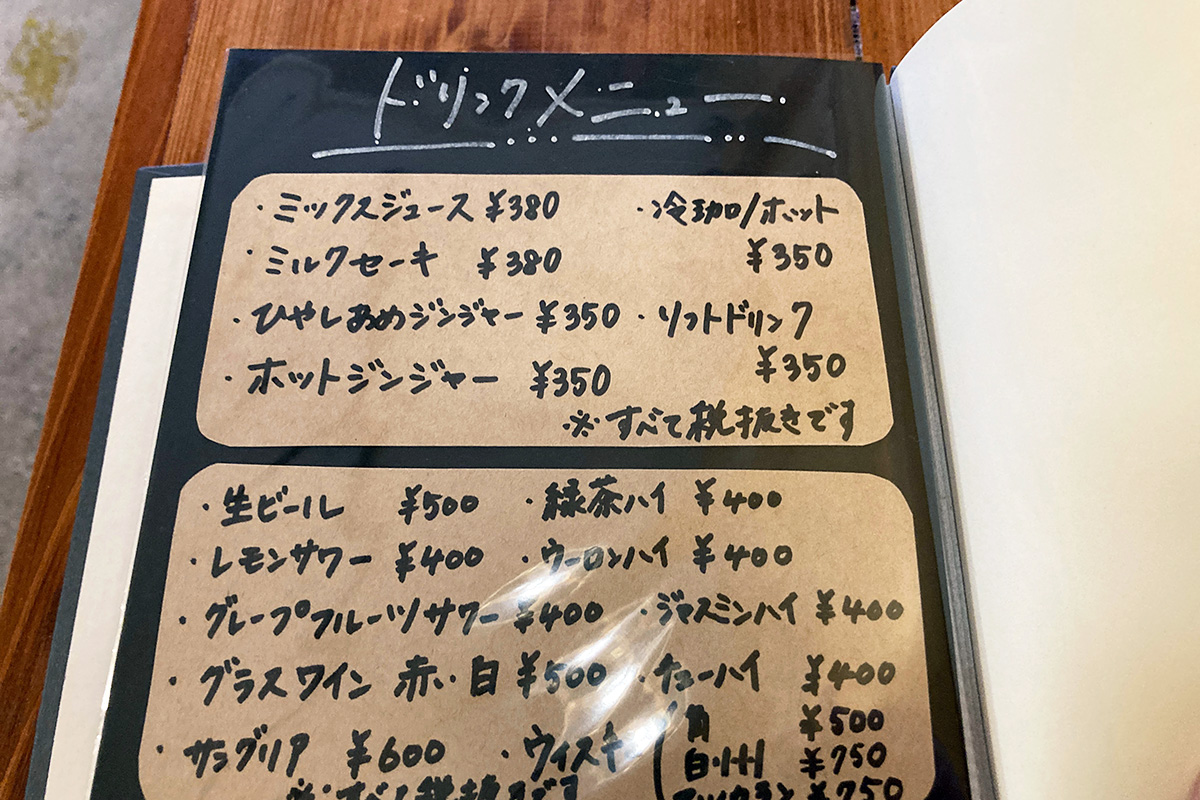 ドリンクメニュー
・ミックスジュース ¥380
・ミルクセーキ ¥380
・ひやしあめジンジャー ¥350
・ホットジンジャー ¥350
・冷珈/ホット
¥350
・ソフトドリンク
¥350
※すべて税抜きです
・生ビール ¥500
・レモンサワー ¥400
・グレープフルーツサワー ¥400
・グラスワイン 赤・白 ¥500
・サングリア ¥600
・緑茶ハイ ¥400
・ウーロンハイ ¥400
・ジャスミンハイ ¥400
・チューハイ ¥400
・ウィスキー
角 ¥500
白州 ¥750
¥750
※すべて税抜きです